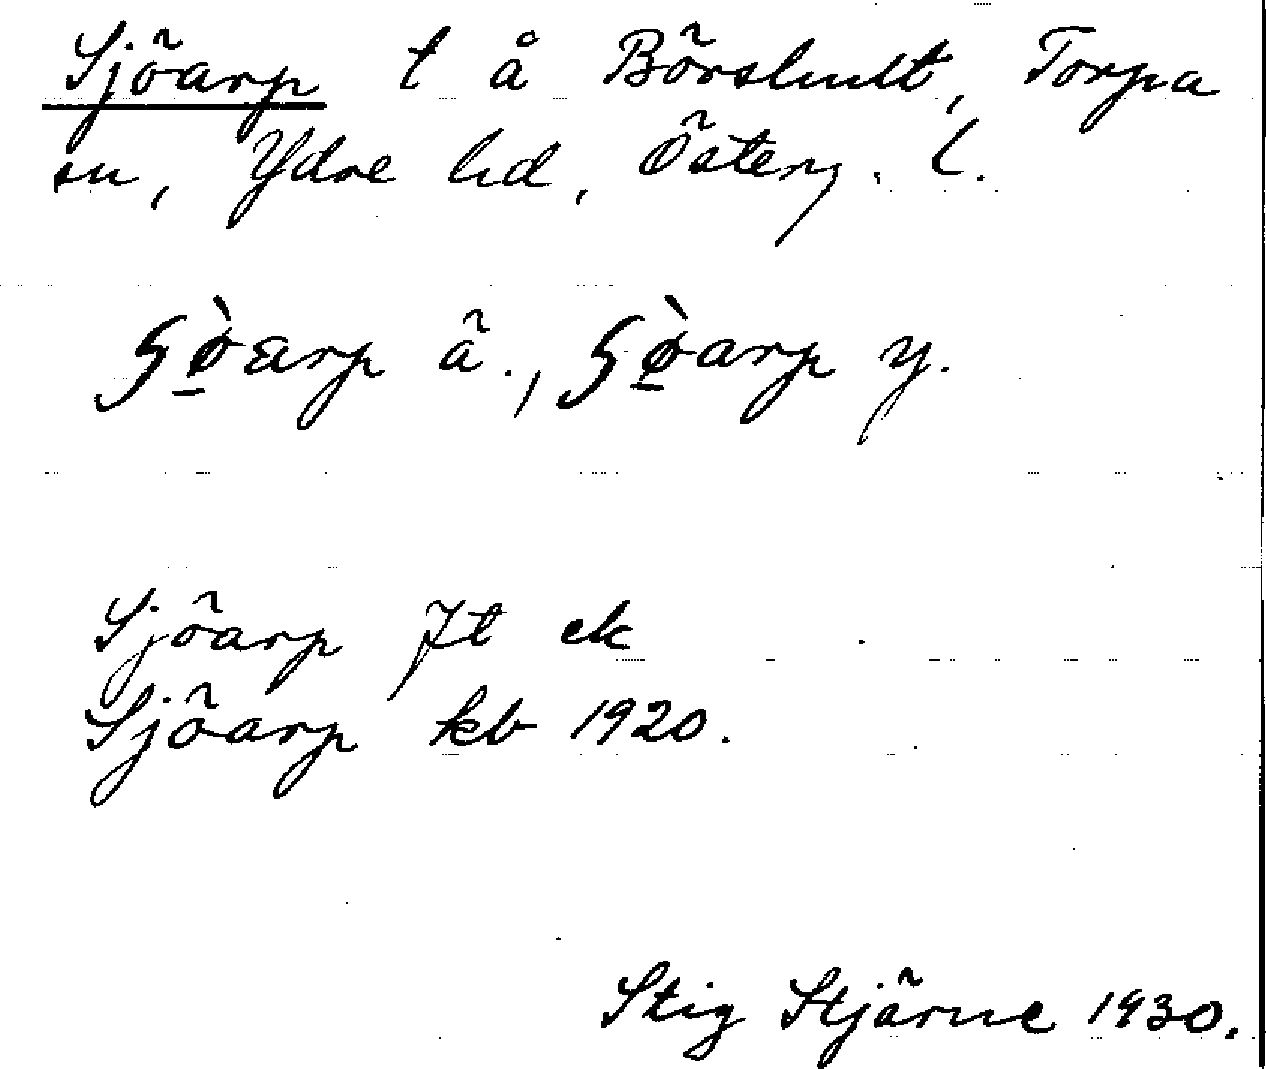 Sjöarp t å Börshult, Torpa
sn, Ydre hd, Österg. l.
ä., y.
Sjöarp Jt ek
Sjöarp kb 1920.
Stig Stjärne 1930.